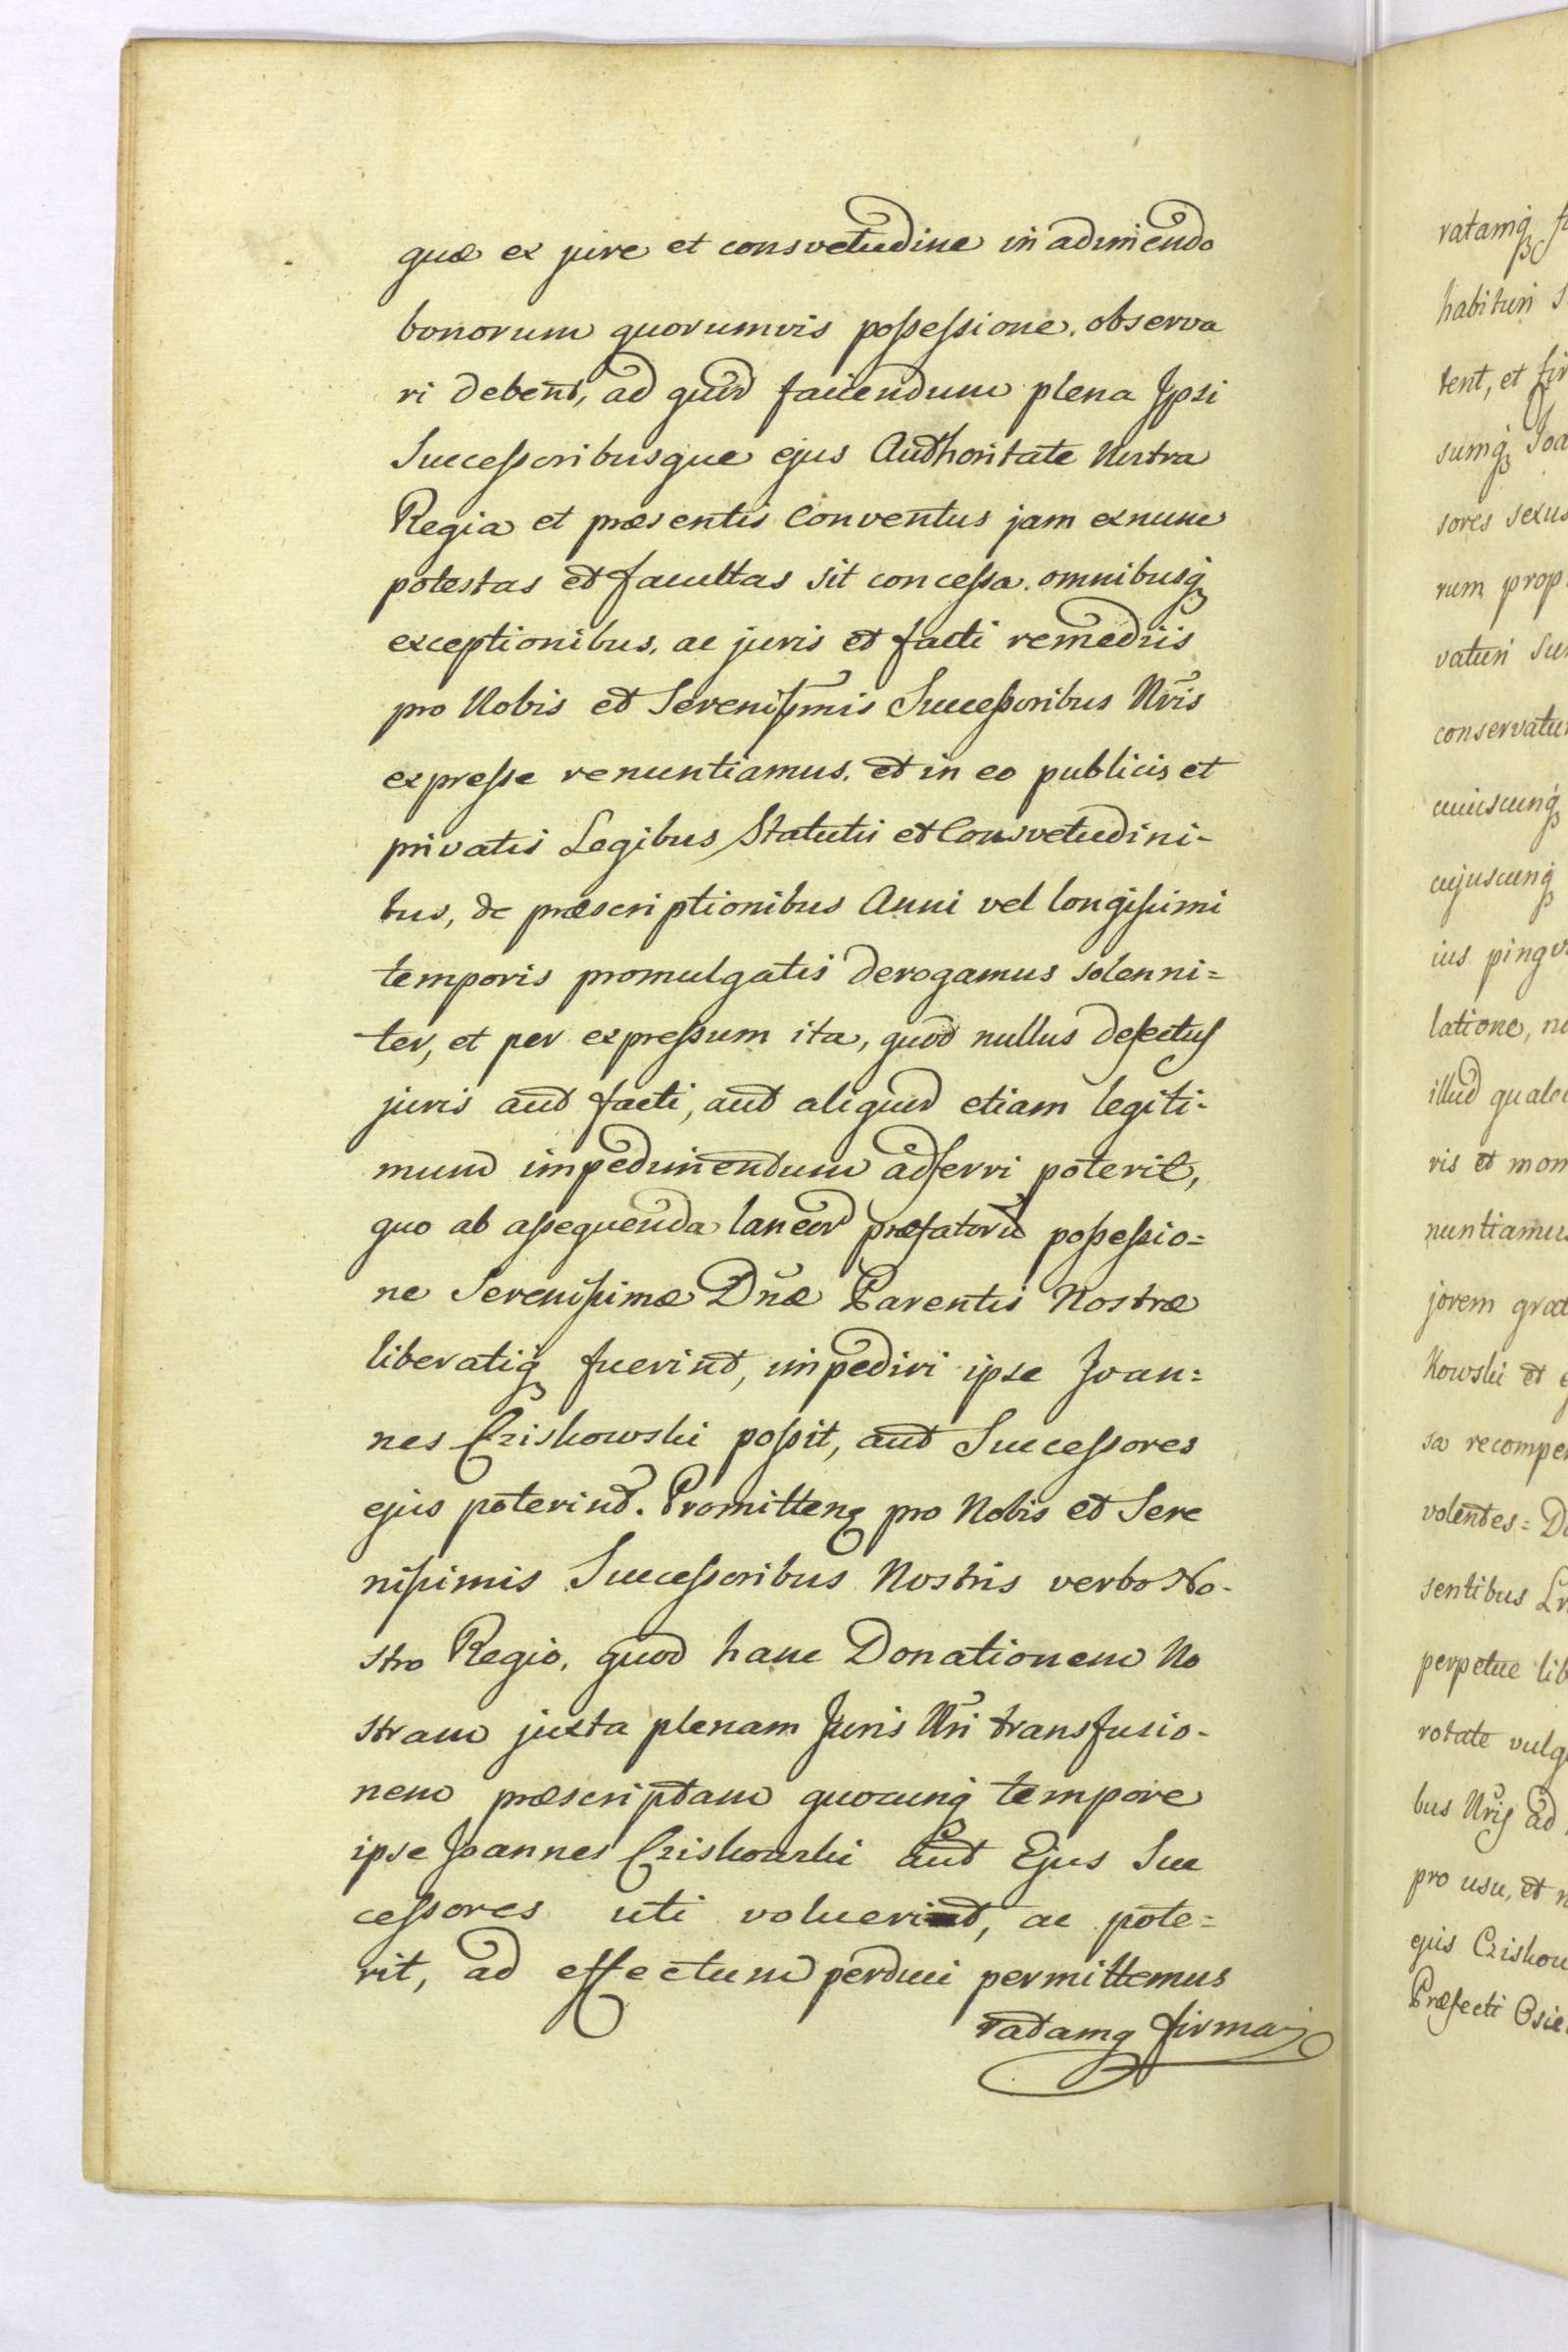 quæ ex jure et consvetudine in adimendo
bonorum quorumvis poſseſsione. observa
ri debent, ad quod faciendum plena Ipsi
Succeſsoribusque ejus Authoritate Nostra
Regia et præsentis Conventus jam exnunc
potestas et facultas sit conceſsa. omnibusq₃
exceptionibus. ac juris et facti remediis
pro Nobis et Sereniſsmis Succeſsoribus Nr̃is
expreſse renuntiamus. et in eo publicis et
privatis Legibus Statutis et Consvetudini-
bus, de præscriptionibus Anni vel longiſsimi
temporis promulgatis derogamus solenni=
ter, et per expreſsum ita, quod nullus defectus
juris aut facti, aut aliquid etiam legiti-
mum impedimendum adferri poterit,
quo ab aſsequenda laneor præfatorū poſseſsio=
ne Sereniſsimæ Dn̄æ Parentis Nostræ
liberatiq₃ fuerint, impediri ipse Joan=
nes Cziskowski poſsit, aut Succeſsores
ejus poterint. Promittenq₃ pro Nobis et Sere
niſsimis Succeſsoribus Nostris verbo No-
stro Regio, quod hanc Donationem No
stram juxta plenam Juris Nr̃i transfusio-
nem præscriptam quocunq₃ tempore
ipse Joannes Cziskowski aut Ejus Suc
ceſsores uti voluerint, ac pote=
rit, ad effectum perduci permittemus
ratamq firma
ratamq₃
habituri
tent, et
sumq₃ Joa
sores sexus
rum prop
vaturi
conservatur
cuiuscunq₃
cujuscunq₃
ius pingv
latione,
illud qualec
ris et mon
nuntiamus
jorem grat
Kowski et
sa recompen
volentes=
sentibus
perpetue lib
rotate vulg
bus Nr̃is ad
pro usu, et
ejus Cziskow
Præfecti Osie